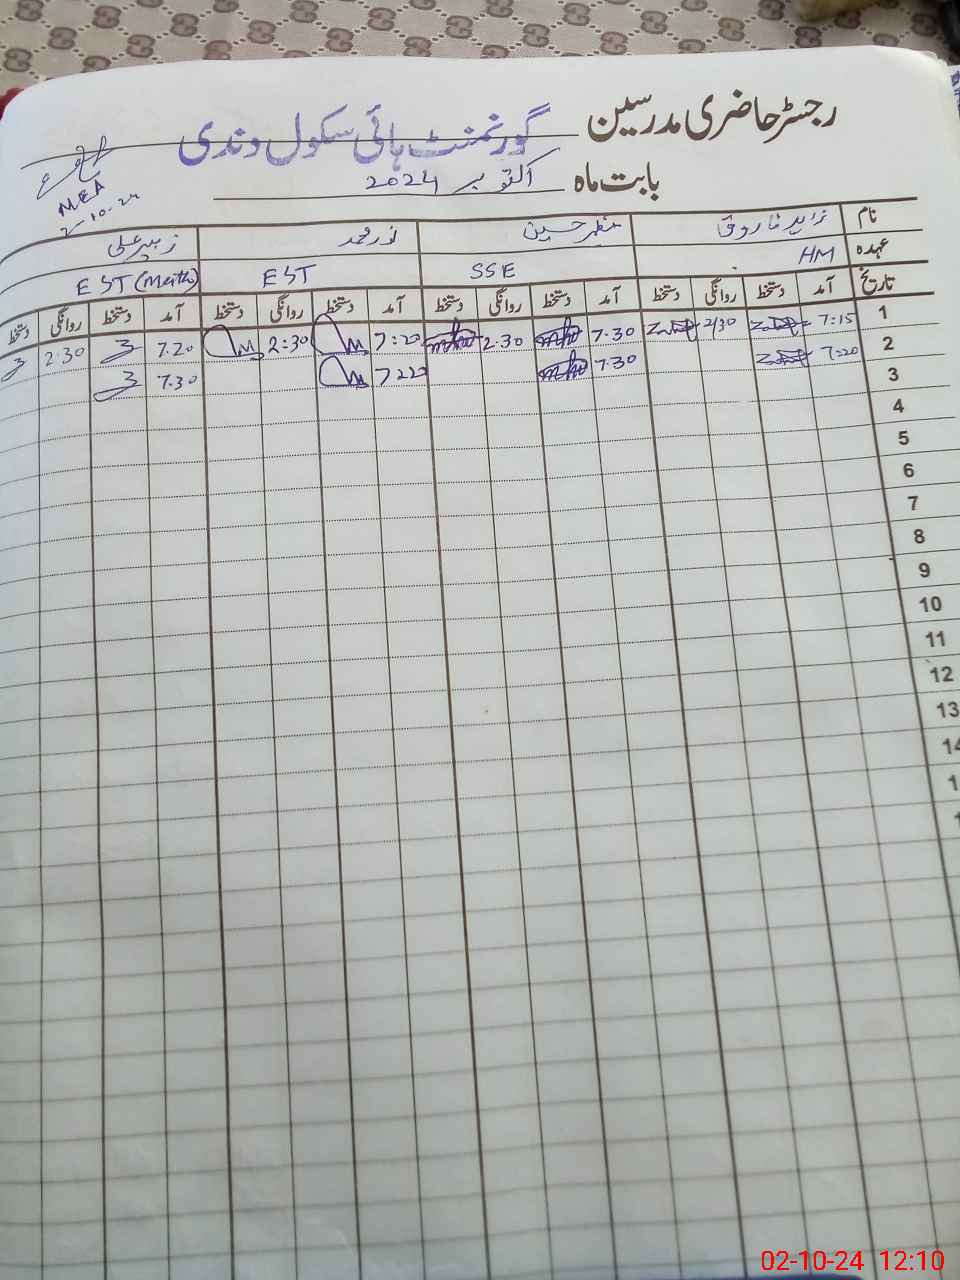 رجسٹر حاضری مدرسین گورنمنٹ ہائی سکول وندی
بابت ماہ اکتوبر 2024
MEA
2-10-24
نام زاہد فاروق مظہر حسین نور محمد زبیر علی
عہدہ HM SSE EST EST (Math)
تاریخ آمد دستخط روانگی دستخط آمد دستخط روانگی دستخط آمد دستخط روانگی دستخط آمد دستخط روانگی دستخط
1 7:15 2/30 7.30 2.30 7:20 2:30 7.20 2.30
2 7:20 7.30 7.30
3
4
5
6
7
8
9
10
11
12
13
14
02-10-24 12:10